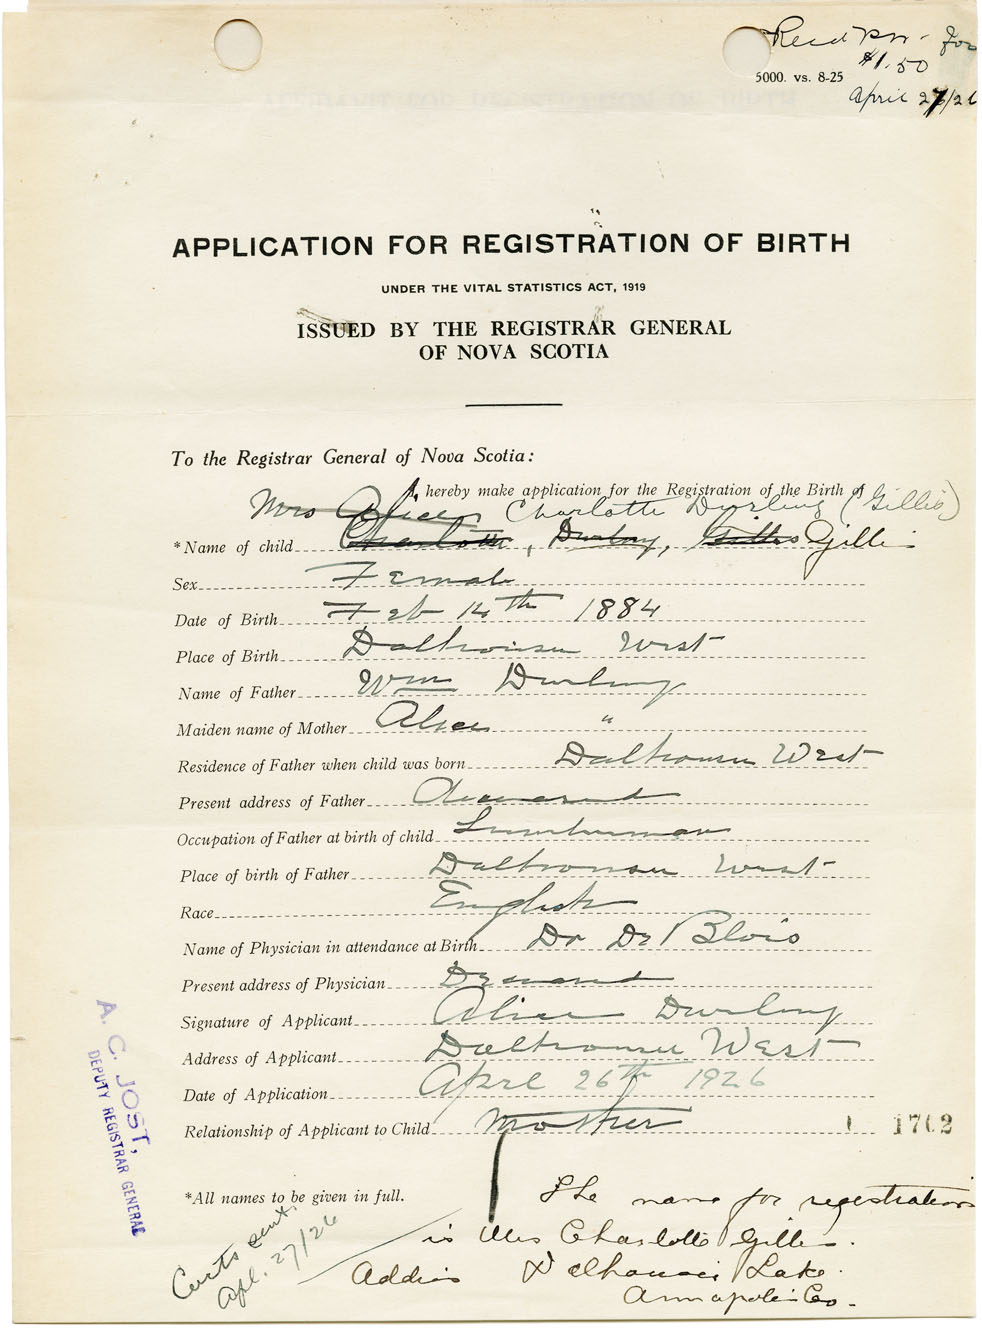 Recd P.N. for
$1.50
5000. vs. 8-25
April 27/26
APPLICATION FOR REGISTRATION OF BIRTH
UNDER THE VITAL STATISTICS ACT, 1919
ISSUED BY THE REGISTRAR GENERAL
OF NOVA SCOTIA
To the Registrar General of Nova Scotia:
I, hereby make application for the Registration of the Birth of
Mrs Alice Charlotte Durling (Gillis)
*Name of child Charlotte, Durling, Gillis Gillis
Sex Female
Date of Birth Feb 14th 1884
Place of Birth Dalhousie West
Name of Father Wm Durling
Maiden name of Mother Alice "
Residence of Father when child was born Dalhousie West
Present address of Father Deceased
Occupation of Father at birth of child Lumberman
Place of birth of Father Dalhousie West
Race English
Name of Physician in attendance at Birth Dr De Blois
Present address of Physician Deceased
Signature of Applicant Alice Durling
Address of Applicant Dalhousie West
Date of Application April 26th 1926
Relationship of Applicant to Child Mother
1702
A. C. JOST,
DEPUTY REGISTRAR GENERAL
*All names to be given in full.
The name for registration
is Mrs Charlotte Gillis.
Address Dalhousie Lake.
Annapolis Co.
Certs sent.
Apl. 27/26